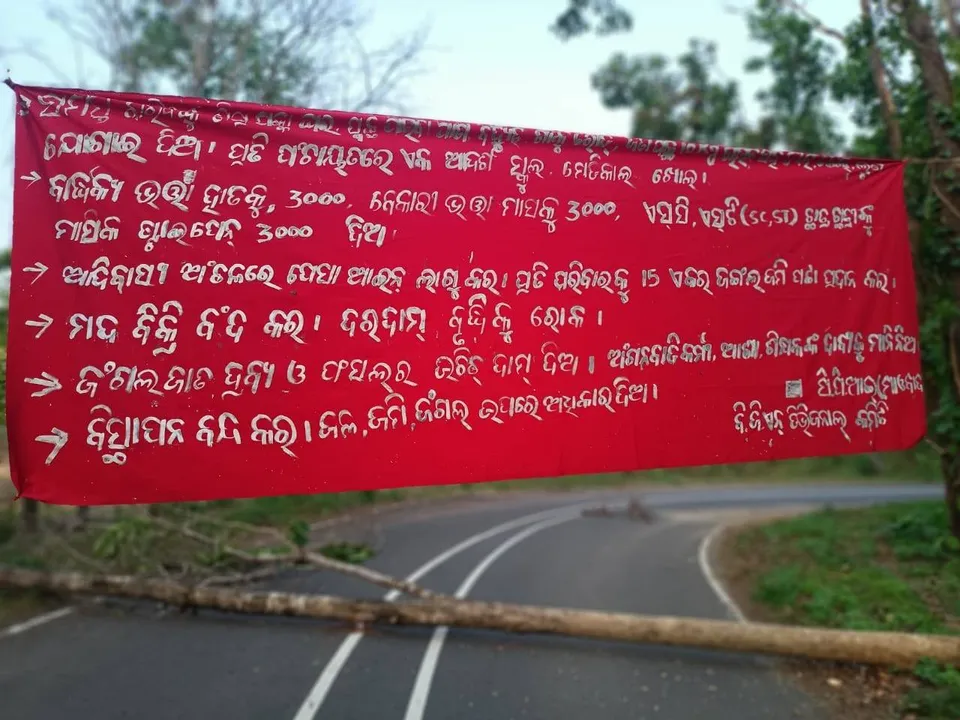 ଯୋଗାଇ ଦିଅ। ପ୍ରତି ପଂଚାୟତରେ ଏକ ଆଦର୍ଶ ସ୍କୁଲ. ମେଡିକାଲ ଖୋଲ।
→ ବାର୍ଦ୍ଧକ୍ୟ ଭର୍ତ୍ତା ହାତକୁ, 3000, ବେକାରୀ ଭତ୍ତା ମାସକୁ 3000, ଏସ୍‌ସି, ଏସ୍‌ଟି (SC, ST) ଛାତ୍ରଛାତ୍ରୀଙ୍କୁ
ମାସିକ ଷ୍ଟାଇପେନ୍ 3000 ଦିଅ।
→ ଆଦିବାସୀ ଅଂଚଳରେ ପେସା ଆଇନ୍ ଲାଗୁ କର। ପ୍ରତି ପରିବାରକୁ 15 ଏକର ଜଙ୍ଗଲ ଜମି ପଟ୍ଟା ପ୍ରଦାନ କର।
→ ମଦ ବିକ୍ରି ବଂଦ କର। ଦରଦାମ୍ ବୃଦ୍ଧିକୁ ରୋକ।
→ ଜଂଗଲଜାତ ଦ୍ରବ୍ୟ ଓ ଫସଲ୍‌ର ଉଚିତ୍ ଦାମ୍ ଦିଅ। ଅଂଗନବାଡିକର୍ମୀ, ଆଶା, ଶିକ୍ଷକଙ୍କ ଦାବୀକୁ ମାନିନିଅ
→ ବିସ୍ଥାପନ ବନ୍ଦ କର। ଜଳ, ଜମି, ଜଂଗଲ୍ ଉପରେ ଅଧିକାର ଦିଅ।
ସିପିଆଇ(ମାଓବାଦୀ
ବି.ଜିଏନ୍ ଡିଭିଜନାଲ୍ କମିଟି